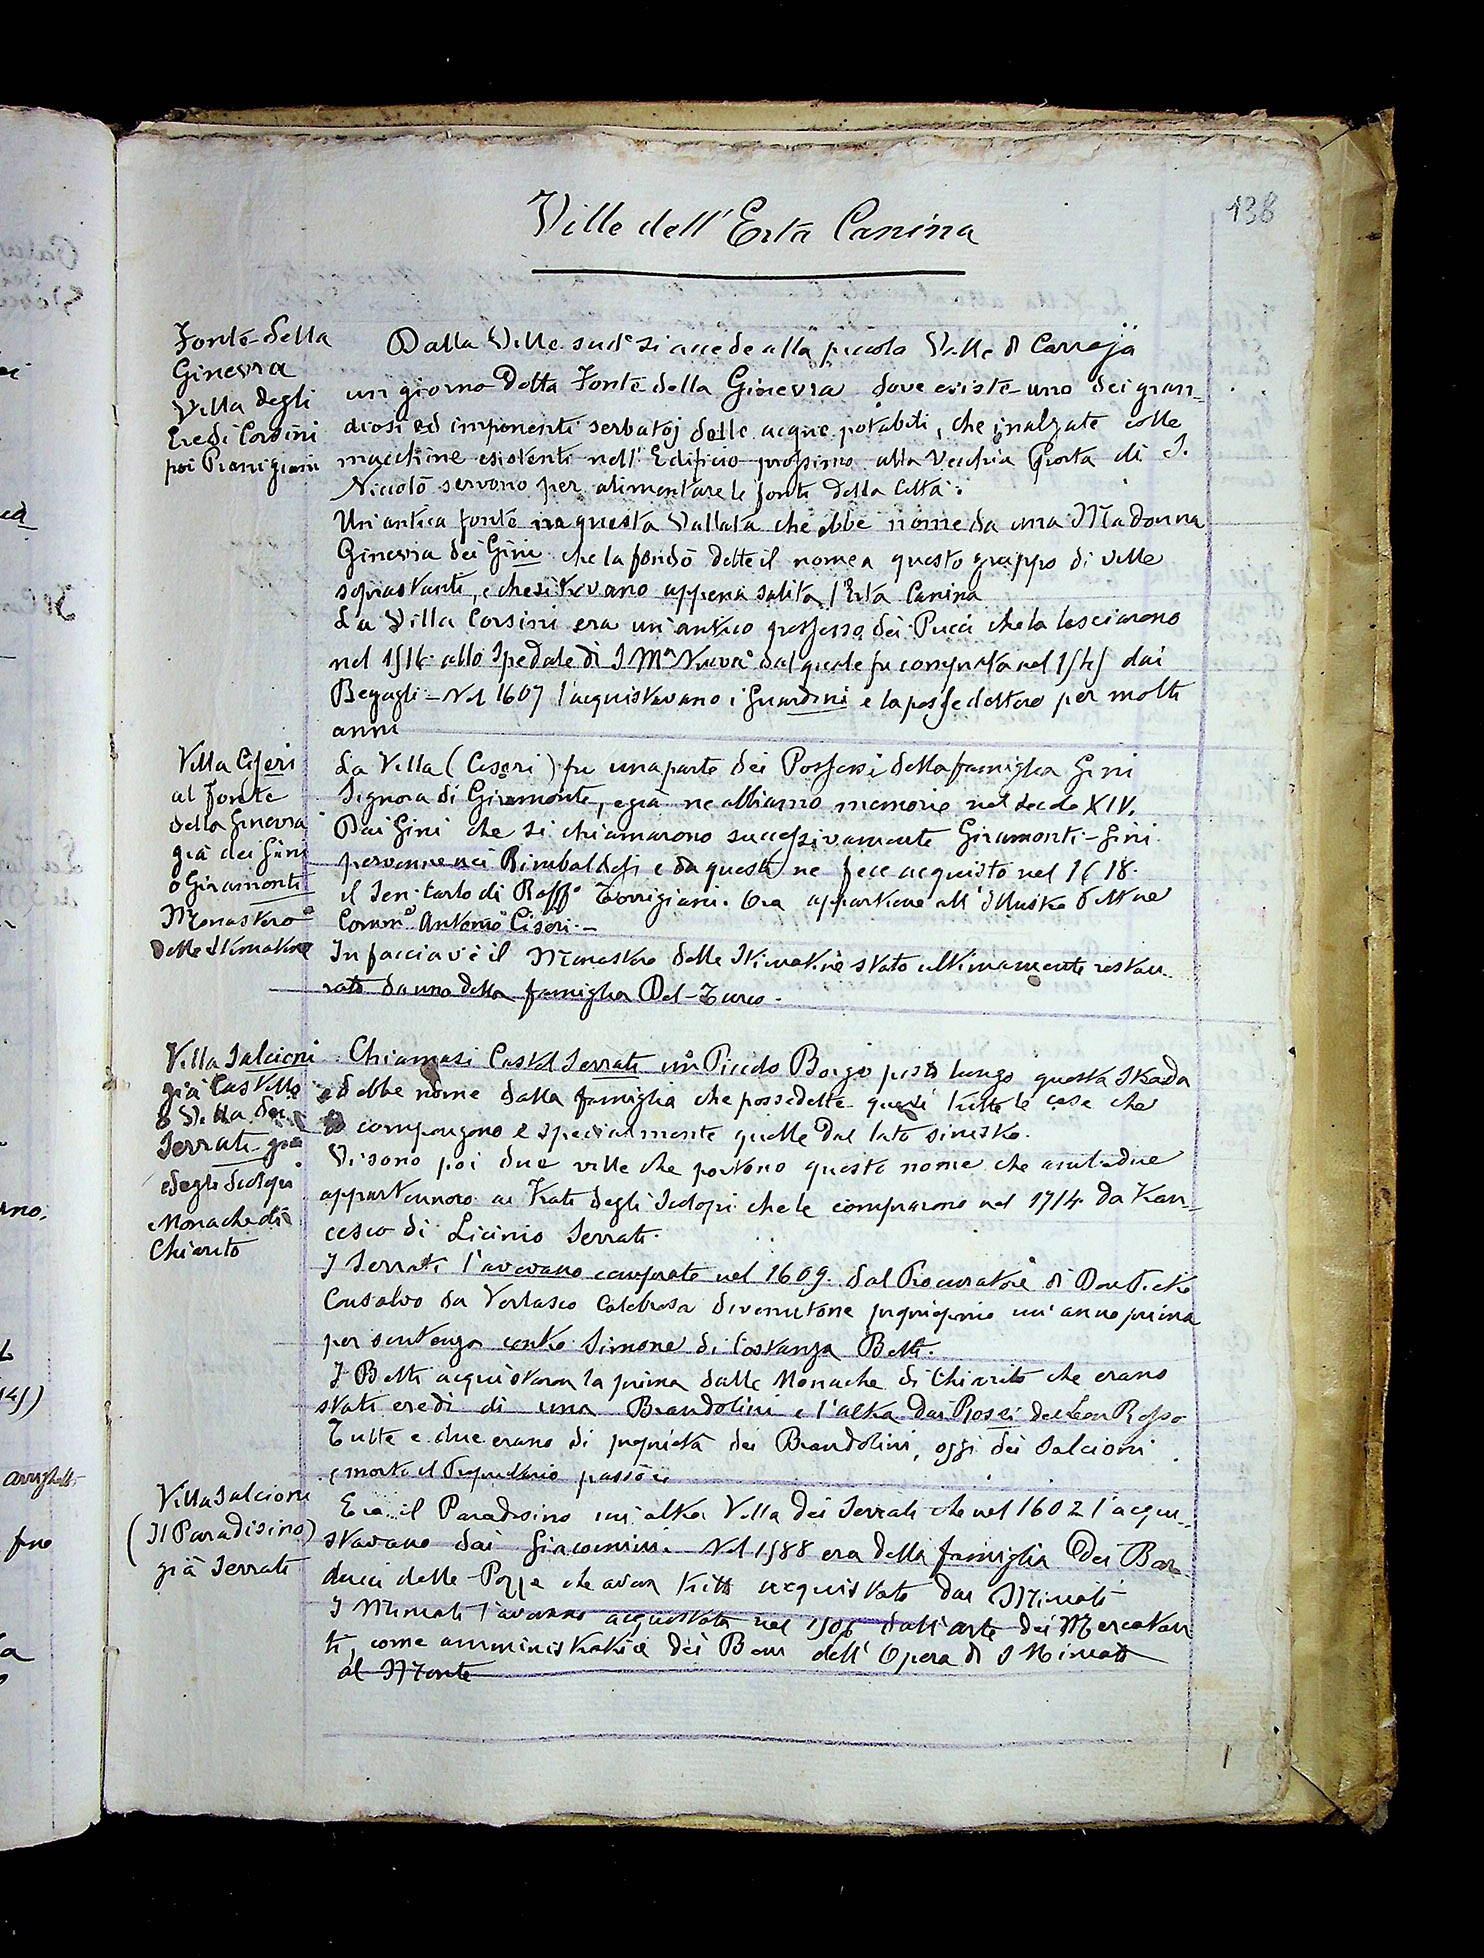 138
Ville dell'Erta Canina
Fonte della
Ginevra
Villa degli
Eredi Corsini
poi Pianigiani
Dalla Ville sudᵉ si accede alla piccola Valle di Carraja
un giorno detta Fonte della Ginevra dove esiste uno dei gran-
diosi ed imponenti serbatoj delle acque potabili, che inalzate colle
macchine esistenti nell'Edificio prossimo alla Vecchia Porta di S.
Niccolò servono per alimentare le fonti della Città.
Un'antica fonte in questa Vallata che ebbe nome da una Madonna
Ginevra dei Gini che la fondò dette il nome a questo gruppo di ville
soprastanti, e che si trovano appena salita l'Erta Canina
La Villa Corsini era un'antico possesso dei Pucci che la lasciarono
nel 1516 allo Spedale di S Mª Nuova dal quale fu comprata nel 1545 dai
Begagli - Nel 1607 l'acquistavano i Guardini e la possedettero per molti
anni
Villa Ciseri
al fonte
della Ginevra
già dei Gini
o Giramonti
Monastero
delle Stimatine
La Villa (Ciseri) fu una parte dei Possessi della famiglia Gini
Signora di Giramonte, e già ne abbiamo memorie nel secolo XIV.
Dai Gini che si chiamarono successivamente Giramonti-Gini
pervenne nei Rimbaldesi e da questi ne fece acquisto nel 1618.
il Sen: Carlo di Raffº Torrigiani. Ora appartiene all'Illustre Pittore
Commº Antonio Ciseri.-
In faccia v'è il Monastero delle Stimatine stato ultimamente restau-
rato da uno della famiglia Del-Turco.
Villa Salcioni
già Castello
o Villa dei
Serrati già
degli Scolopi
Monache di
Chiarito
Chiamasi Castel Serrati un Piccolo Borgo posto lungo questa Strada
ed ebbe nome dalla famiglia che possedette quasi tutte le case che
lo compongono e specialmente quelle dal lato sinistro.
Vi sono poi due ville che portano questo nome che ambedue
appartennero ai Frati degli Scolopi che le comprarono nel 1714 da Fran-
cesco di Licinio Serrati.
I Serrati l'avevano comprate nel 1609. dal Procuratore di Don Pietro
Consalvo da Verlasco Calabrosa divenutone proprigonio un'anno prima
per sentenza contro Simone di Costanza Betti.
I Betti acquistaron la prima dalle Monache di Chiarito che erano
state eredi di una Brandolini e l'altra dai Rossi del Leon Rosso
Tutte e due erano di proprietà dei Brandolini, oggi dei Salcioni
e morto il Proprietario passò ai
Villa Salcioni
(Il Paradisino)
già Serrati
Era il Paradisino un'altra Villa dei Serrati che nel 1602 l'acqui-
stavano dai Giacomini. Nel 1588 era della famiglia dei Bar-
ducci delle Pozze che avean tutto acquistato dai Miniati
I Miniati l'avevano acquistata nel 1506 dall'arte dei Mercatan
ti, come amministratrice dei Beni dell'Opera di S Miniato
al Monte